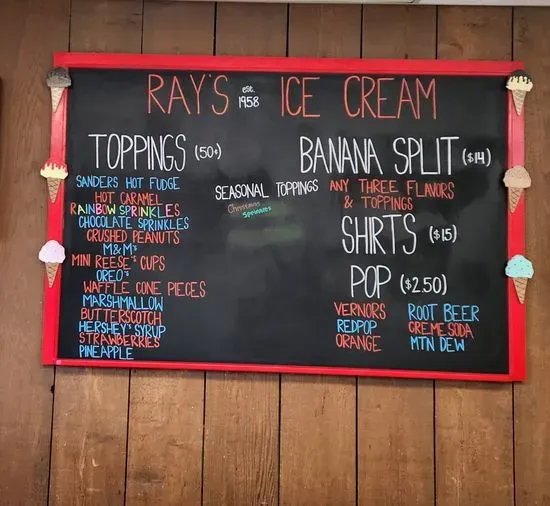 RAY'S est. 1958 ICE CREAM
TOPPINGS (50¢)
SANDERS HOT FUDGE
HOT CARAMEL
RAINBOW SPRINKLES
CHOCOLATE SPRINKLES
CRUSHED PEANUTS
M&M's
MINI REESE'S CUPS
OREO's
WAFFLE CONE PIECES
MARSHMALLOW
BUTTERSCOTCH
HERSHEY'S SYRUP
STRAWBERRIES
PINEAPPLE
SEASONAL TOPPINGS
Christmas
Sprinkles
BANANA SPLIT ($14)
ANY THREE FLAVORS
& TOPPINGS
SHIRTS ($15)
POP ($2.50)
VERNORS ROOT BEER
REDPOP CREME SODA
ORANGE MTN DEW